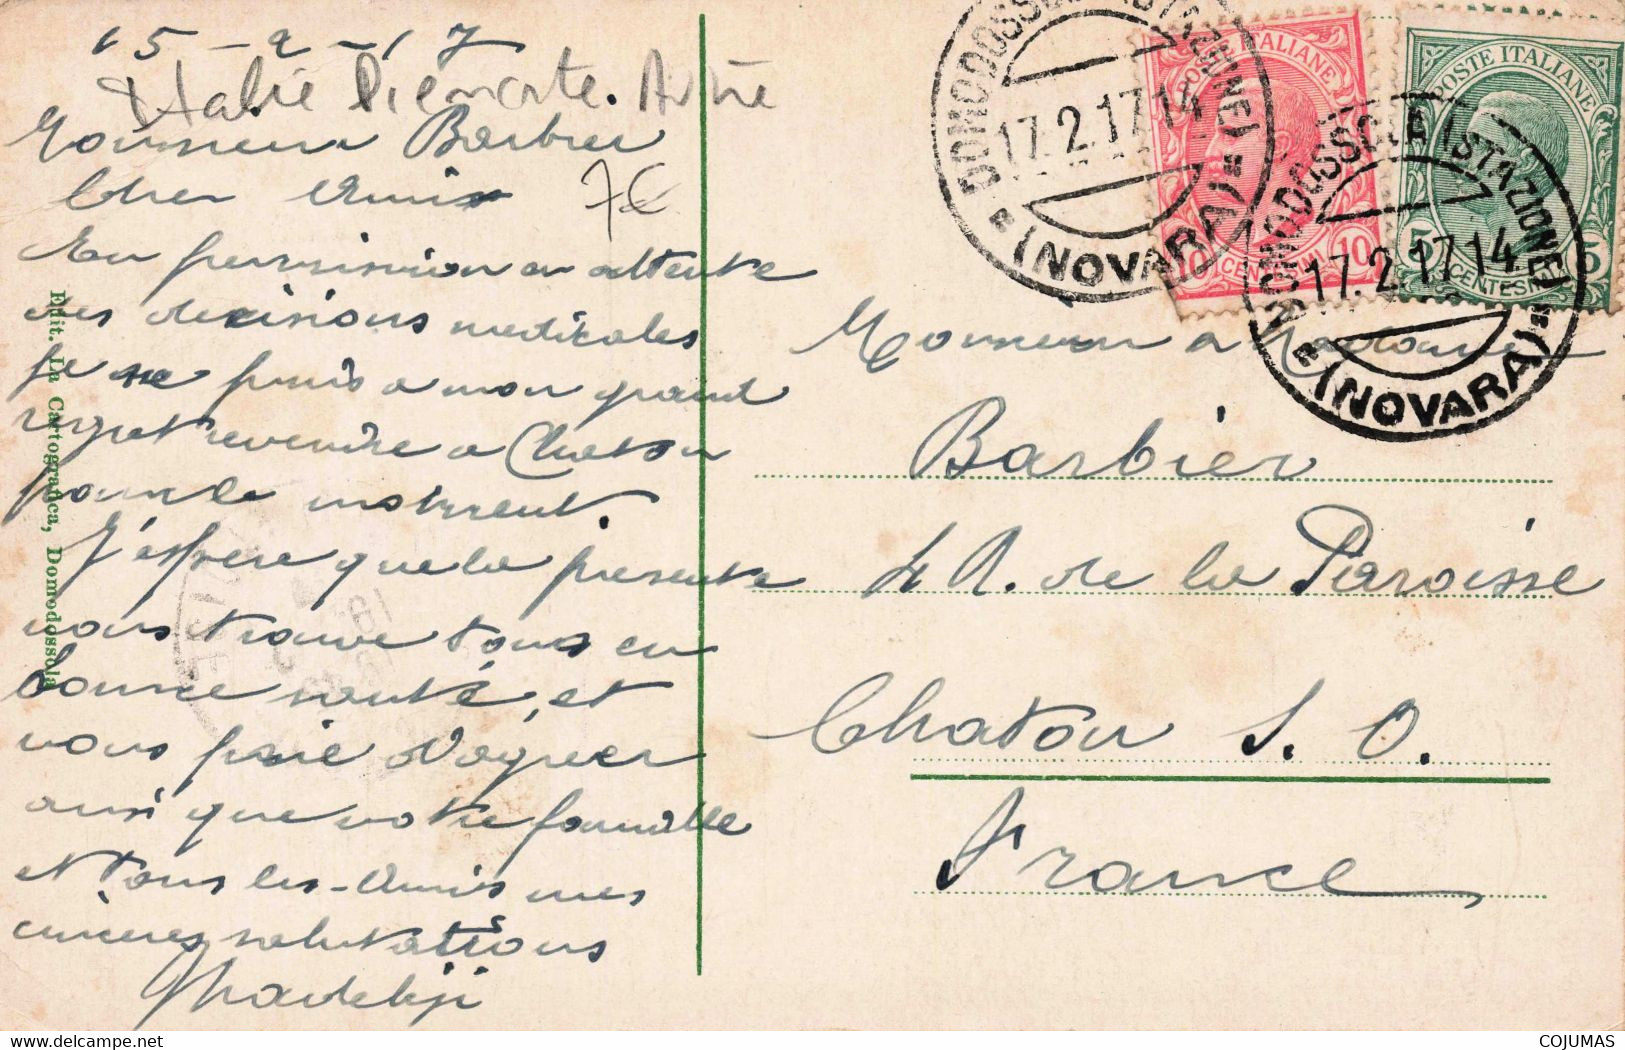 15-2-17
Italie Piemonte. Autre
7€
Monsieur Barbier
Cher Amis
En permission en attente
des decisions medicales
je ne puis a mon grand
regret revenire a Chatou
pour le insturent.
J'espere que la presente
vous trouve tous en
bonne santé, et
vous prie d'agreer
ainsi que votre famille
et tous les Amis mes
cinceres salutations
Edit. La Cartografica, Domodossola
DOMODOSSOLA (STAZIONE)
17.2.17 14
(NOVARA)
POSTE ITALIANE
10 CENTESIMI 10
POSTE ITALIANE
5 CENTESIMI 5
DOMODOSSOLA (STAZIONE)
17.2.17 14
(NOVARA)
Monsieur a Madame
Barbier
4 R. de la Paroisse
Chatou S. O.
France
COJUMAS